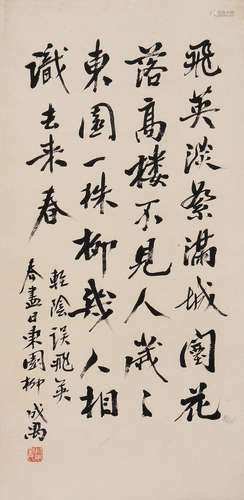 飛英淡蕩滿城闉花
落高樓不見人歲〻
東園一株柳幾人相
識去來春
輕陰誤飛英
春盡日東園柳 成禺